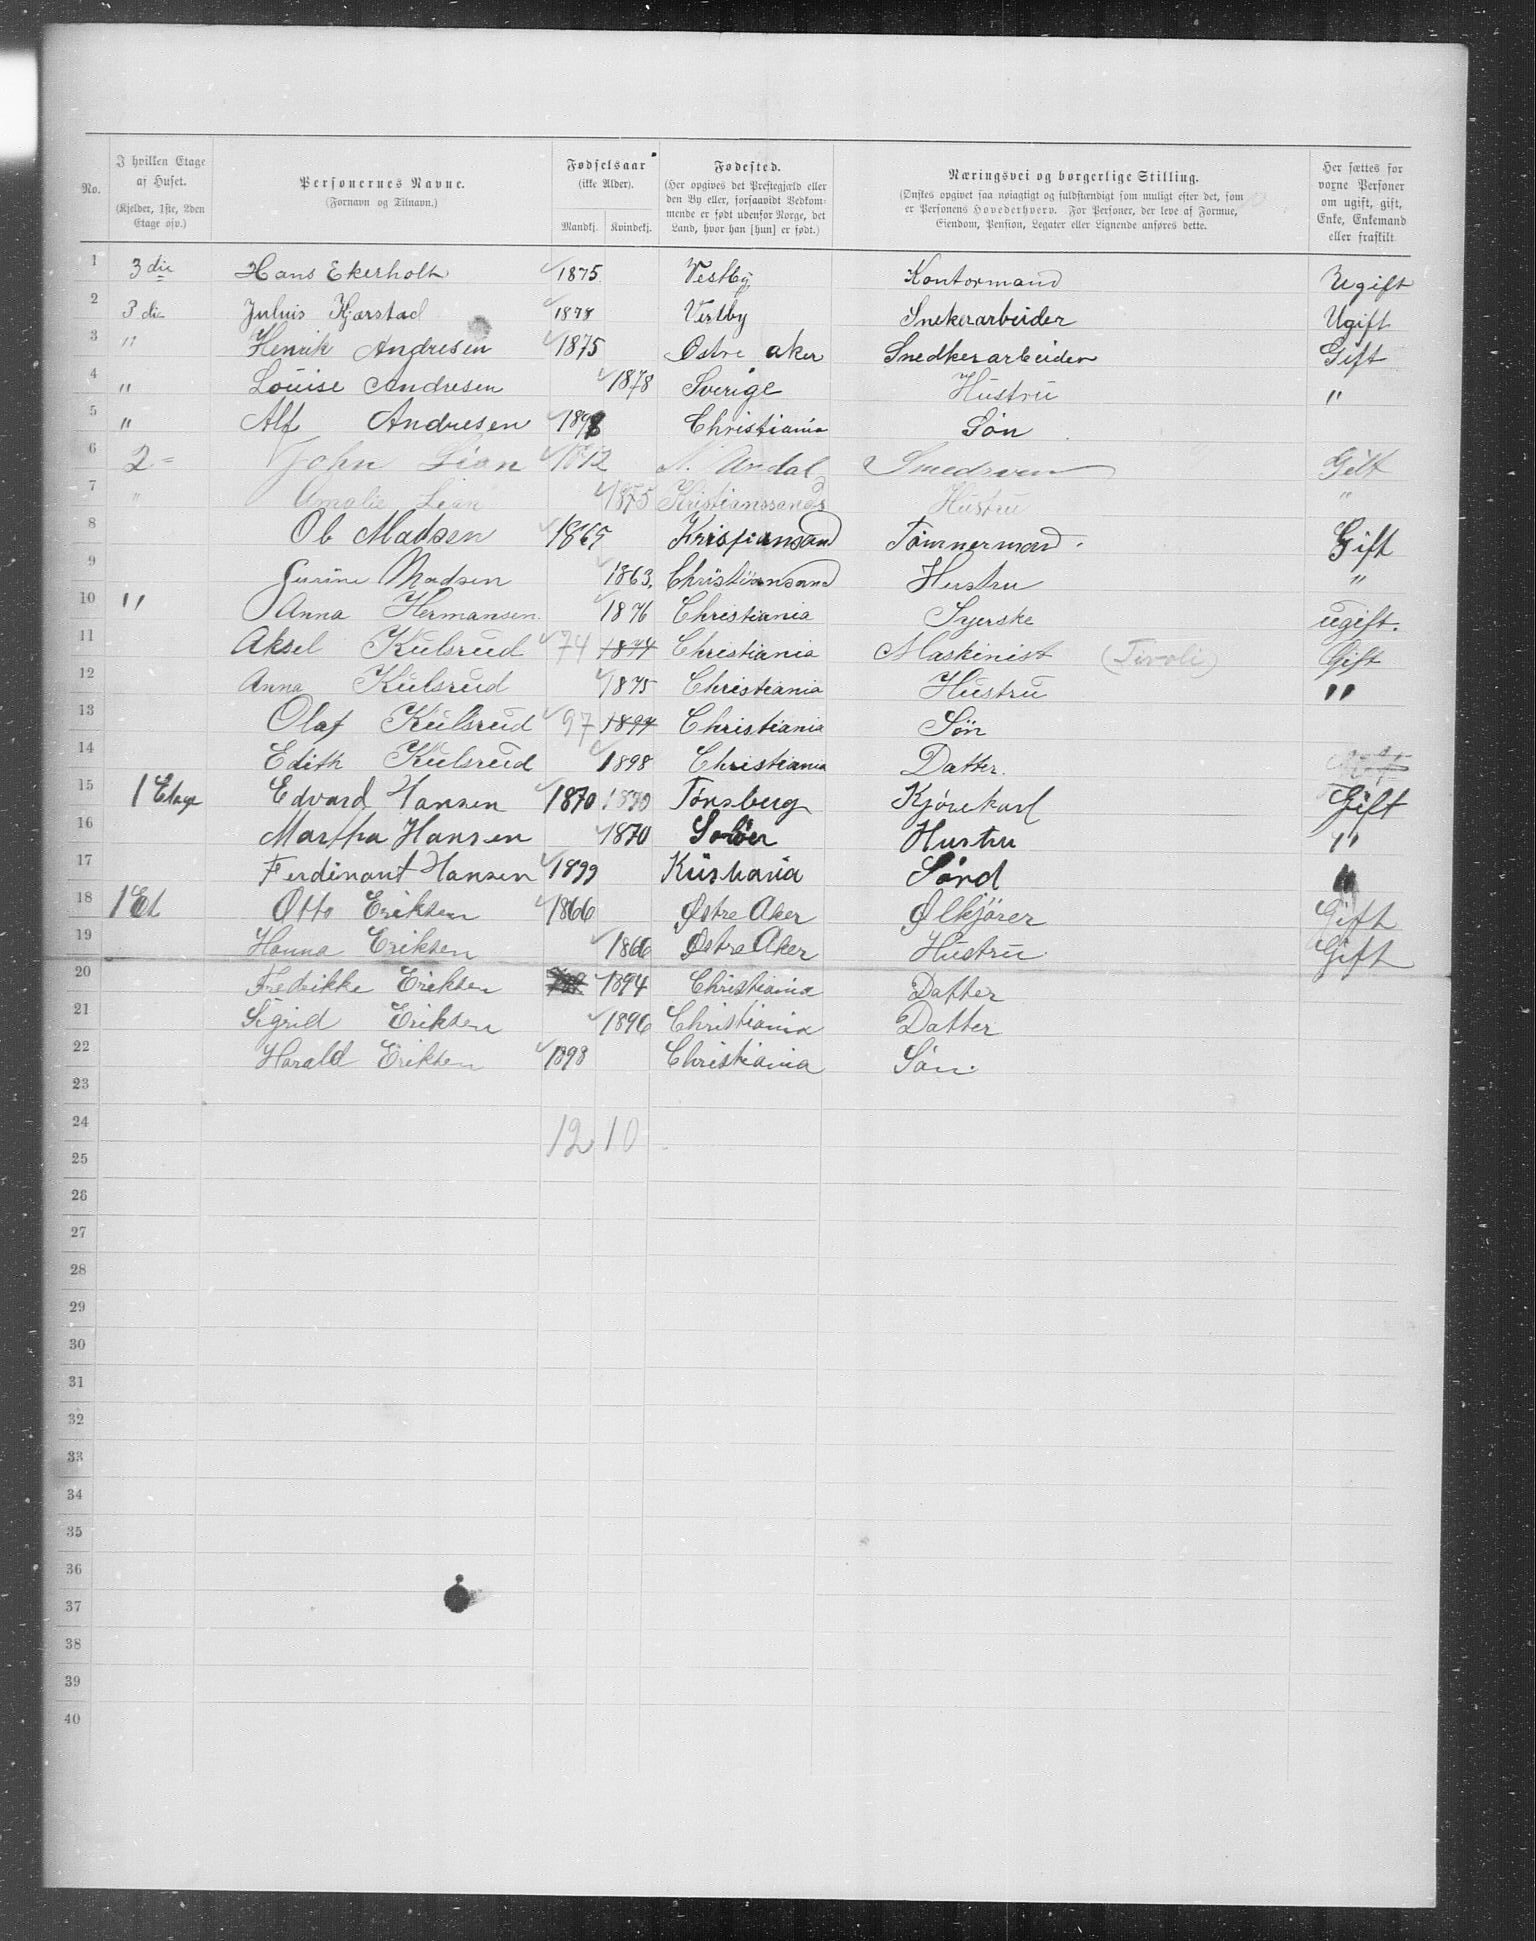 No. I hvilken Etage af Huset. (Kjelder, 1ste, 2den Etage osv.) Personernes Navne. (Fornavn og Tilnavn.) Fødselsaar (ikke Alder). Mandkj. Kvindekj. Fødested. (Her opgives det Prestegjæld eller den By eller, forsaavidt Vedkommende er født udenfor Norge, det Land, hvor han [hun] er født.) Næringsvei og borgerlige Stilling. (Ønstes opgivet saa nøiagtigt og fuldstændigt som muligt efter det, som er Personens Hovederhverv. For Personer, der leve af Formue, Eiendom, Pension, Legater eller Lignende anføres dette. Her sættes for voxne Personer om ugift, gift, Enke, Enkemand eller fraskilt
1 3 die Hans Ekerholt 1875 Vestby Kontormand Ugift
2 3 di Julius Kjærstad 1878 Vestby Snekerarbeider Ugift
3 " Henrik Andresen 1875 Østre aker Snedkerarbeider Gift
4 " Louise Andresen 1878 Sverige Hustru "
5 " Alf Andresen 1898 Christiania Søn
6 2 = John Lian 1872 Smedsven Gift
7 " Amalie Lian 1875 Kristianssands Hustru "
8 Madsen 1865 Kristiansand Tømmermand. Gift
9 Madsen 1863. Christiansand Hustru "
10 " Anna Hermansen 1876 Christiania Syerske ugift.
11 Aksel Kulsrud 74 1874 Christiania Maskinist (Tivoli) Gift
12 Anna Kulsrud 1875 Christiania Hustru "
13 Olaf Kulsrud 97 1897 Christiania Søn
14 Edith Kulsrud 1898 Christiania Datter.
15 1 Etage Edvard Hansen 1870 1870 Tønsberg Kjørekarl Gift
16 Martha Hansen 1870 Soløer Hustru "
17 Ferdinant Hansen 1899 Kristiania Sønd "
18 1 Et Otto Eriksen 1866 Østre Aker Ølkjører Gift
19 Hanna Eriksen 1866 Østre Aker Hustru Gift
20 Fredrikke Eriksen 1894 Christiania Datter
21 Sigrid Eriksen 1896 Christiania Datter
22 Harald Eriksen 1898 Christiania Søn.
23
24 12 10
25
26
27
28
29
30
31
32
33
34
35
36
37
38
39
40